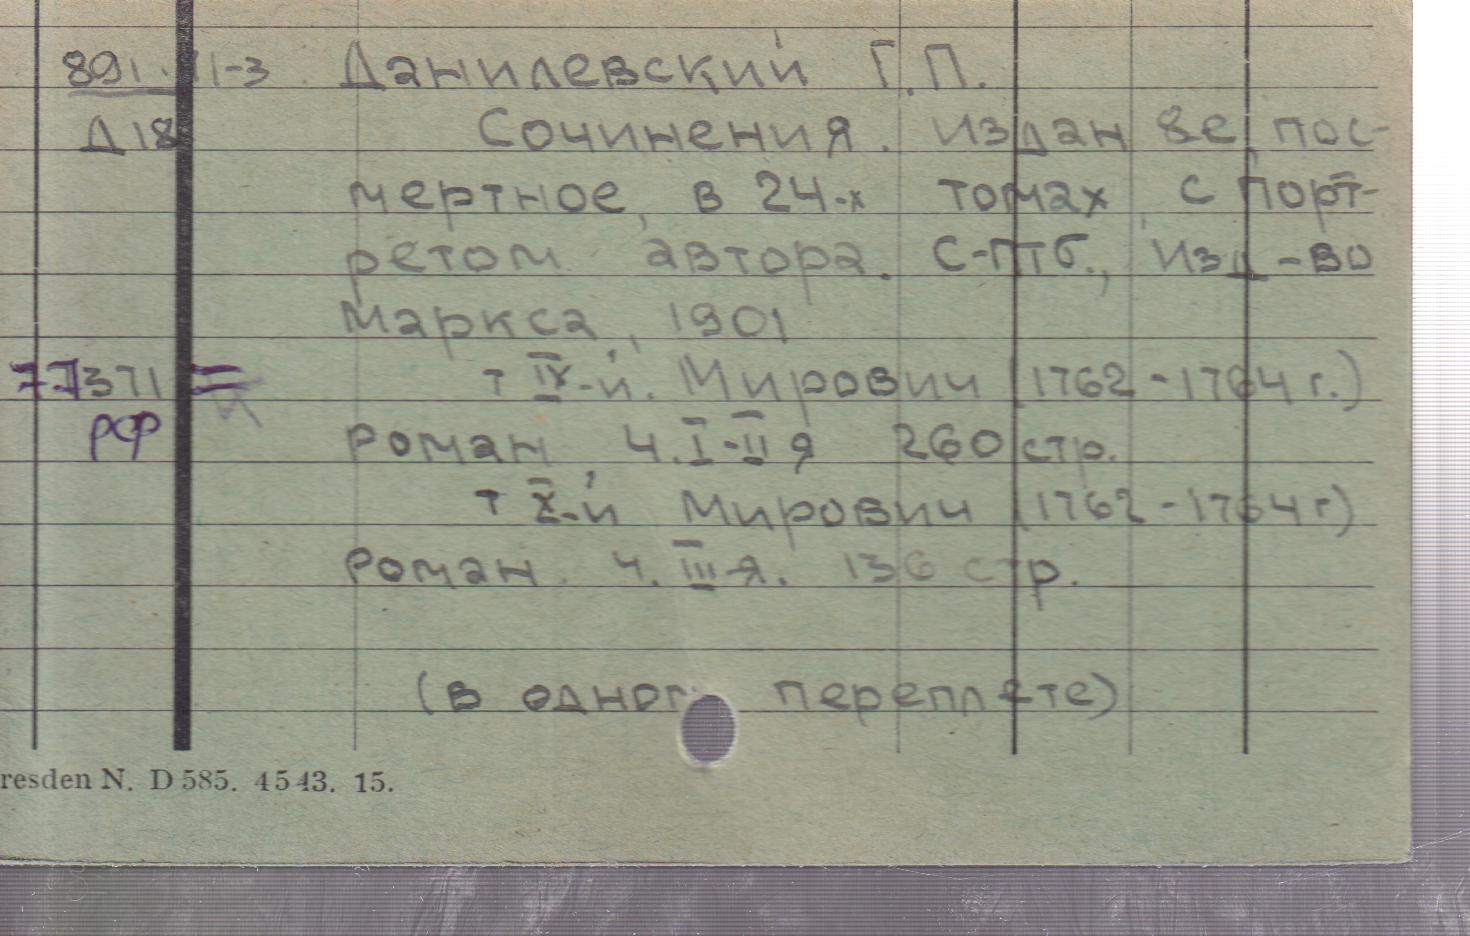 891.11-3 Данилевский Г.П.
Д18 Сочинения. Издан 8е, пос-
мертное, в 24-х томах, с порт-
ретом автора. С-Птб., Изд-во
Маркса, 1901
77371 = т IX-й. Мирович (1762-1764 г.)
РСФ роман ч. I-II я 260 стр.
т X-й Мирович (1762-1764 г)
роман. ч. III-я. 136 стр.
(в одном переплете)
resden N. D 585. 4543. 15.